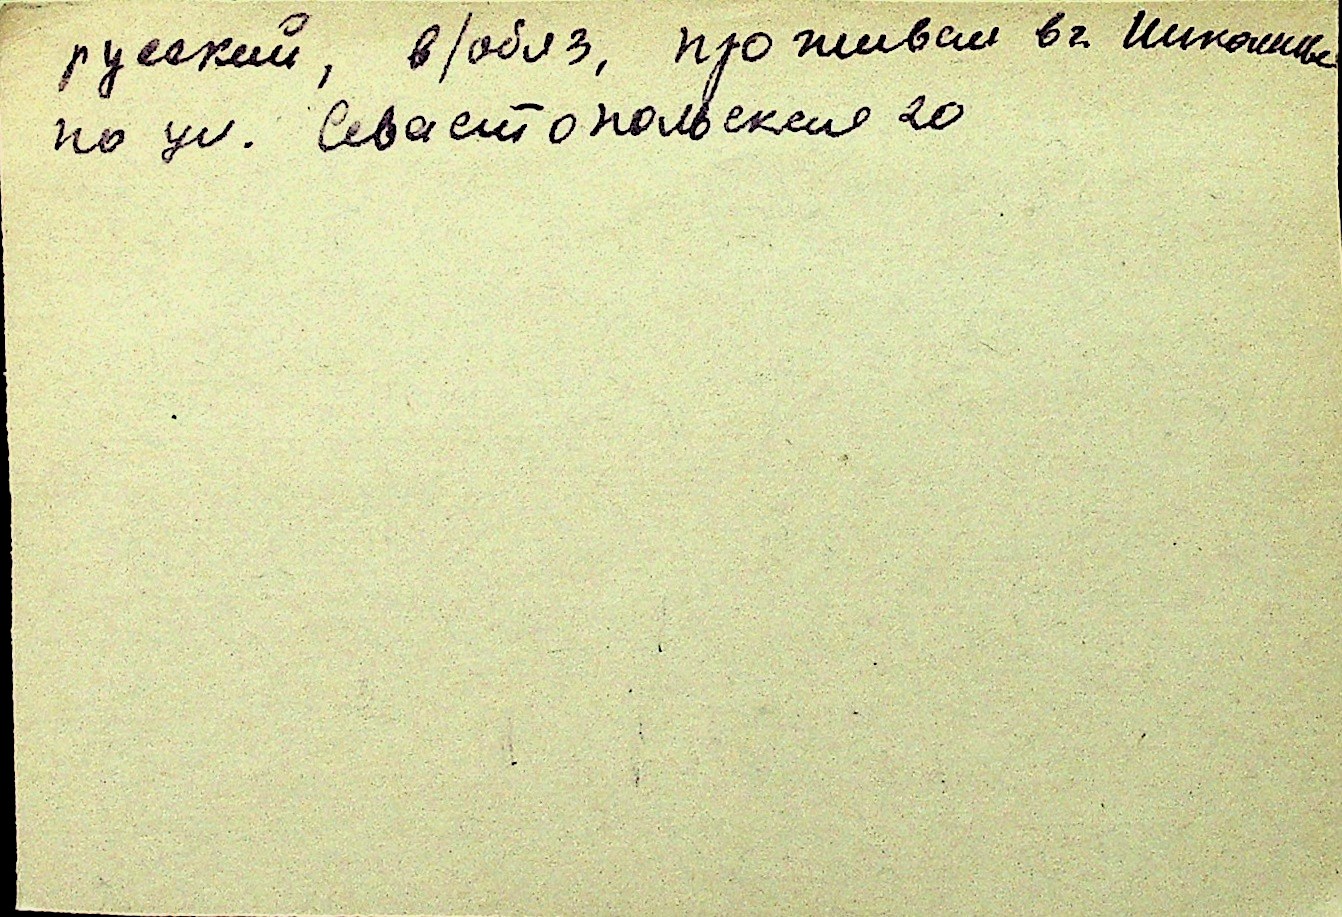 русский, в/обяз, проживал в г. Николаеве
по ул. Севастопольская 20